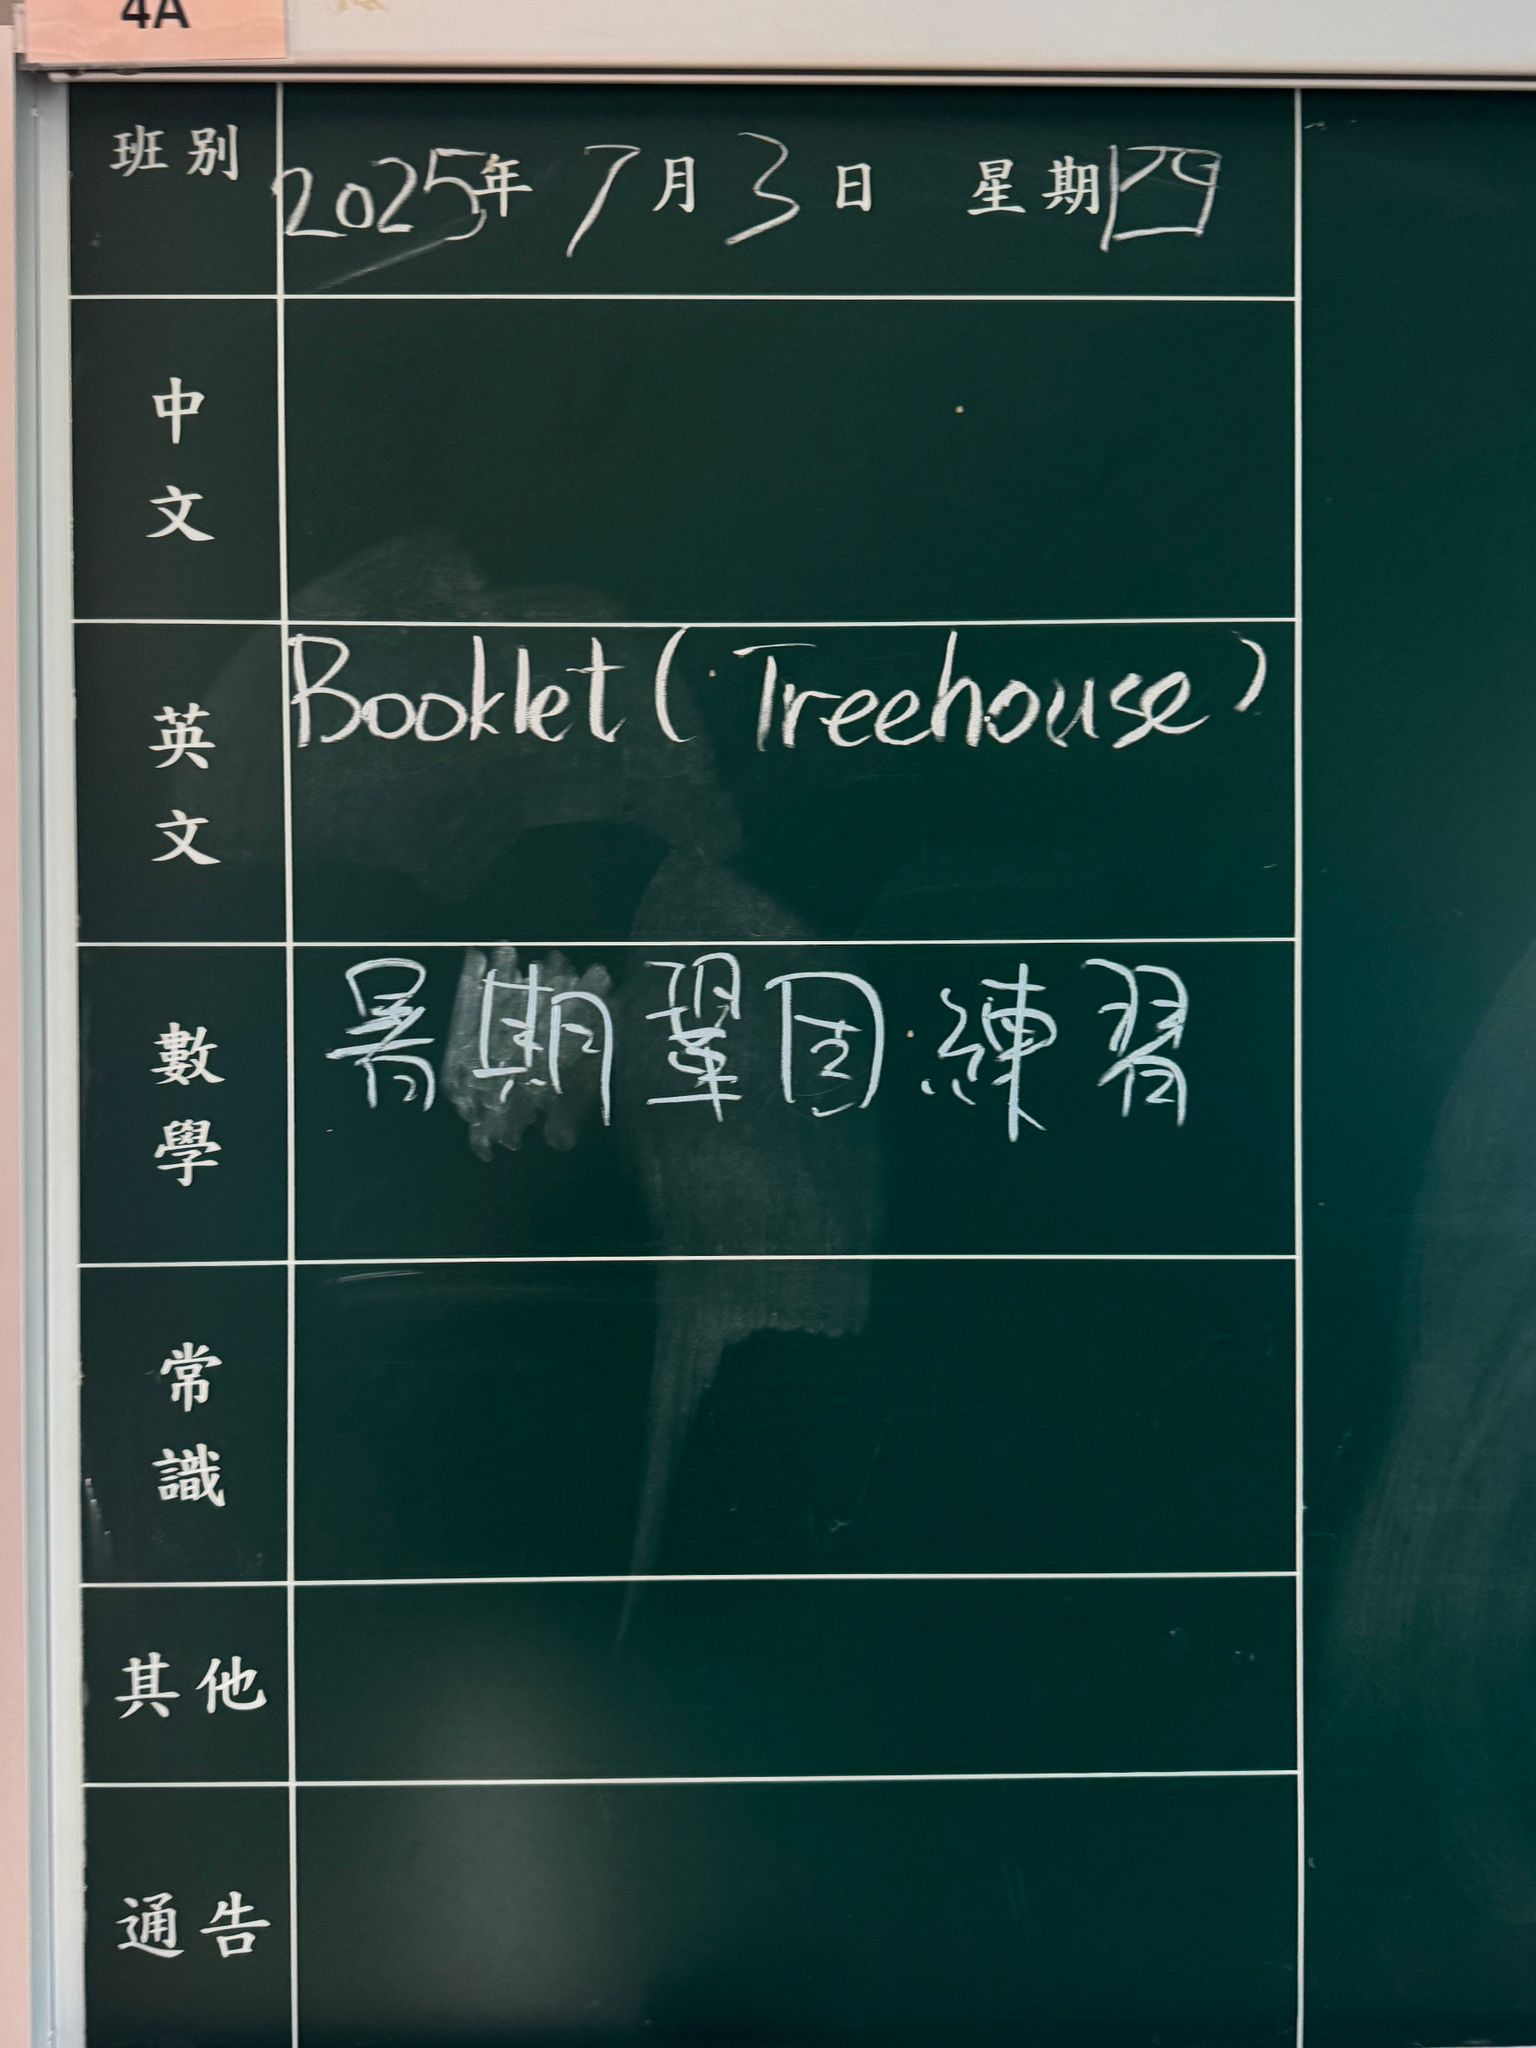 4A
班別 2025年 7月 3日 星期四
中文
英文 Booklet (Treehouse)
數學 暑期鞏固練習
常識
其他
通告